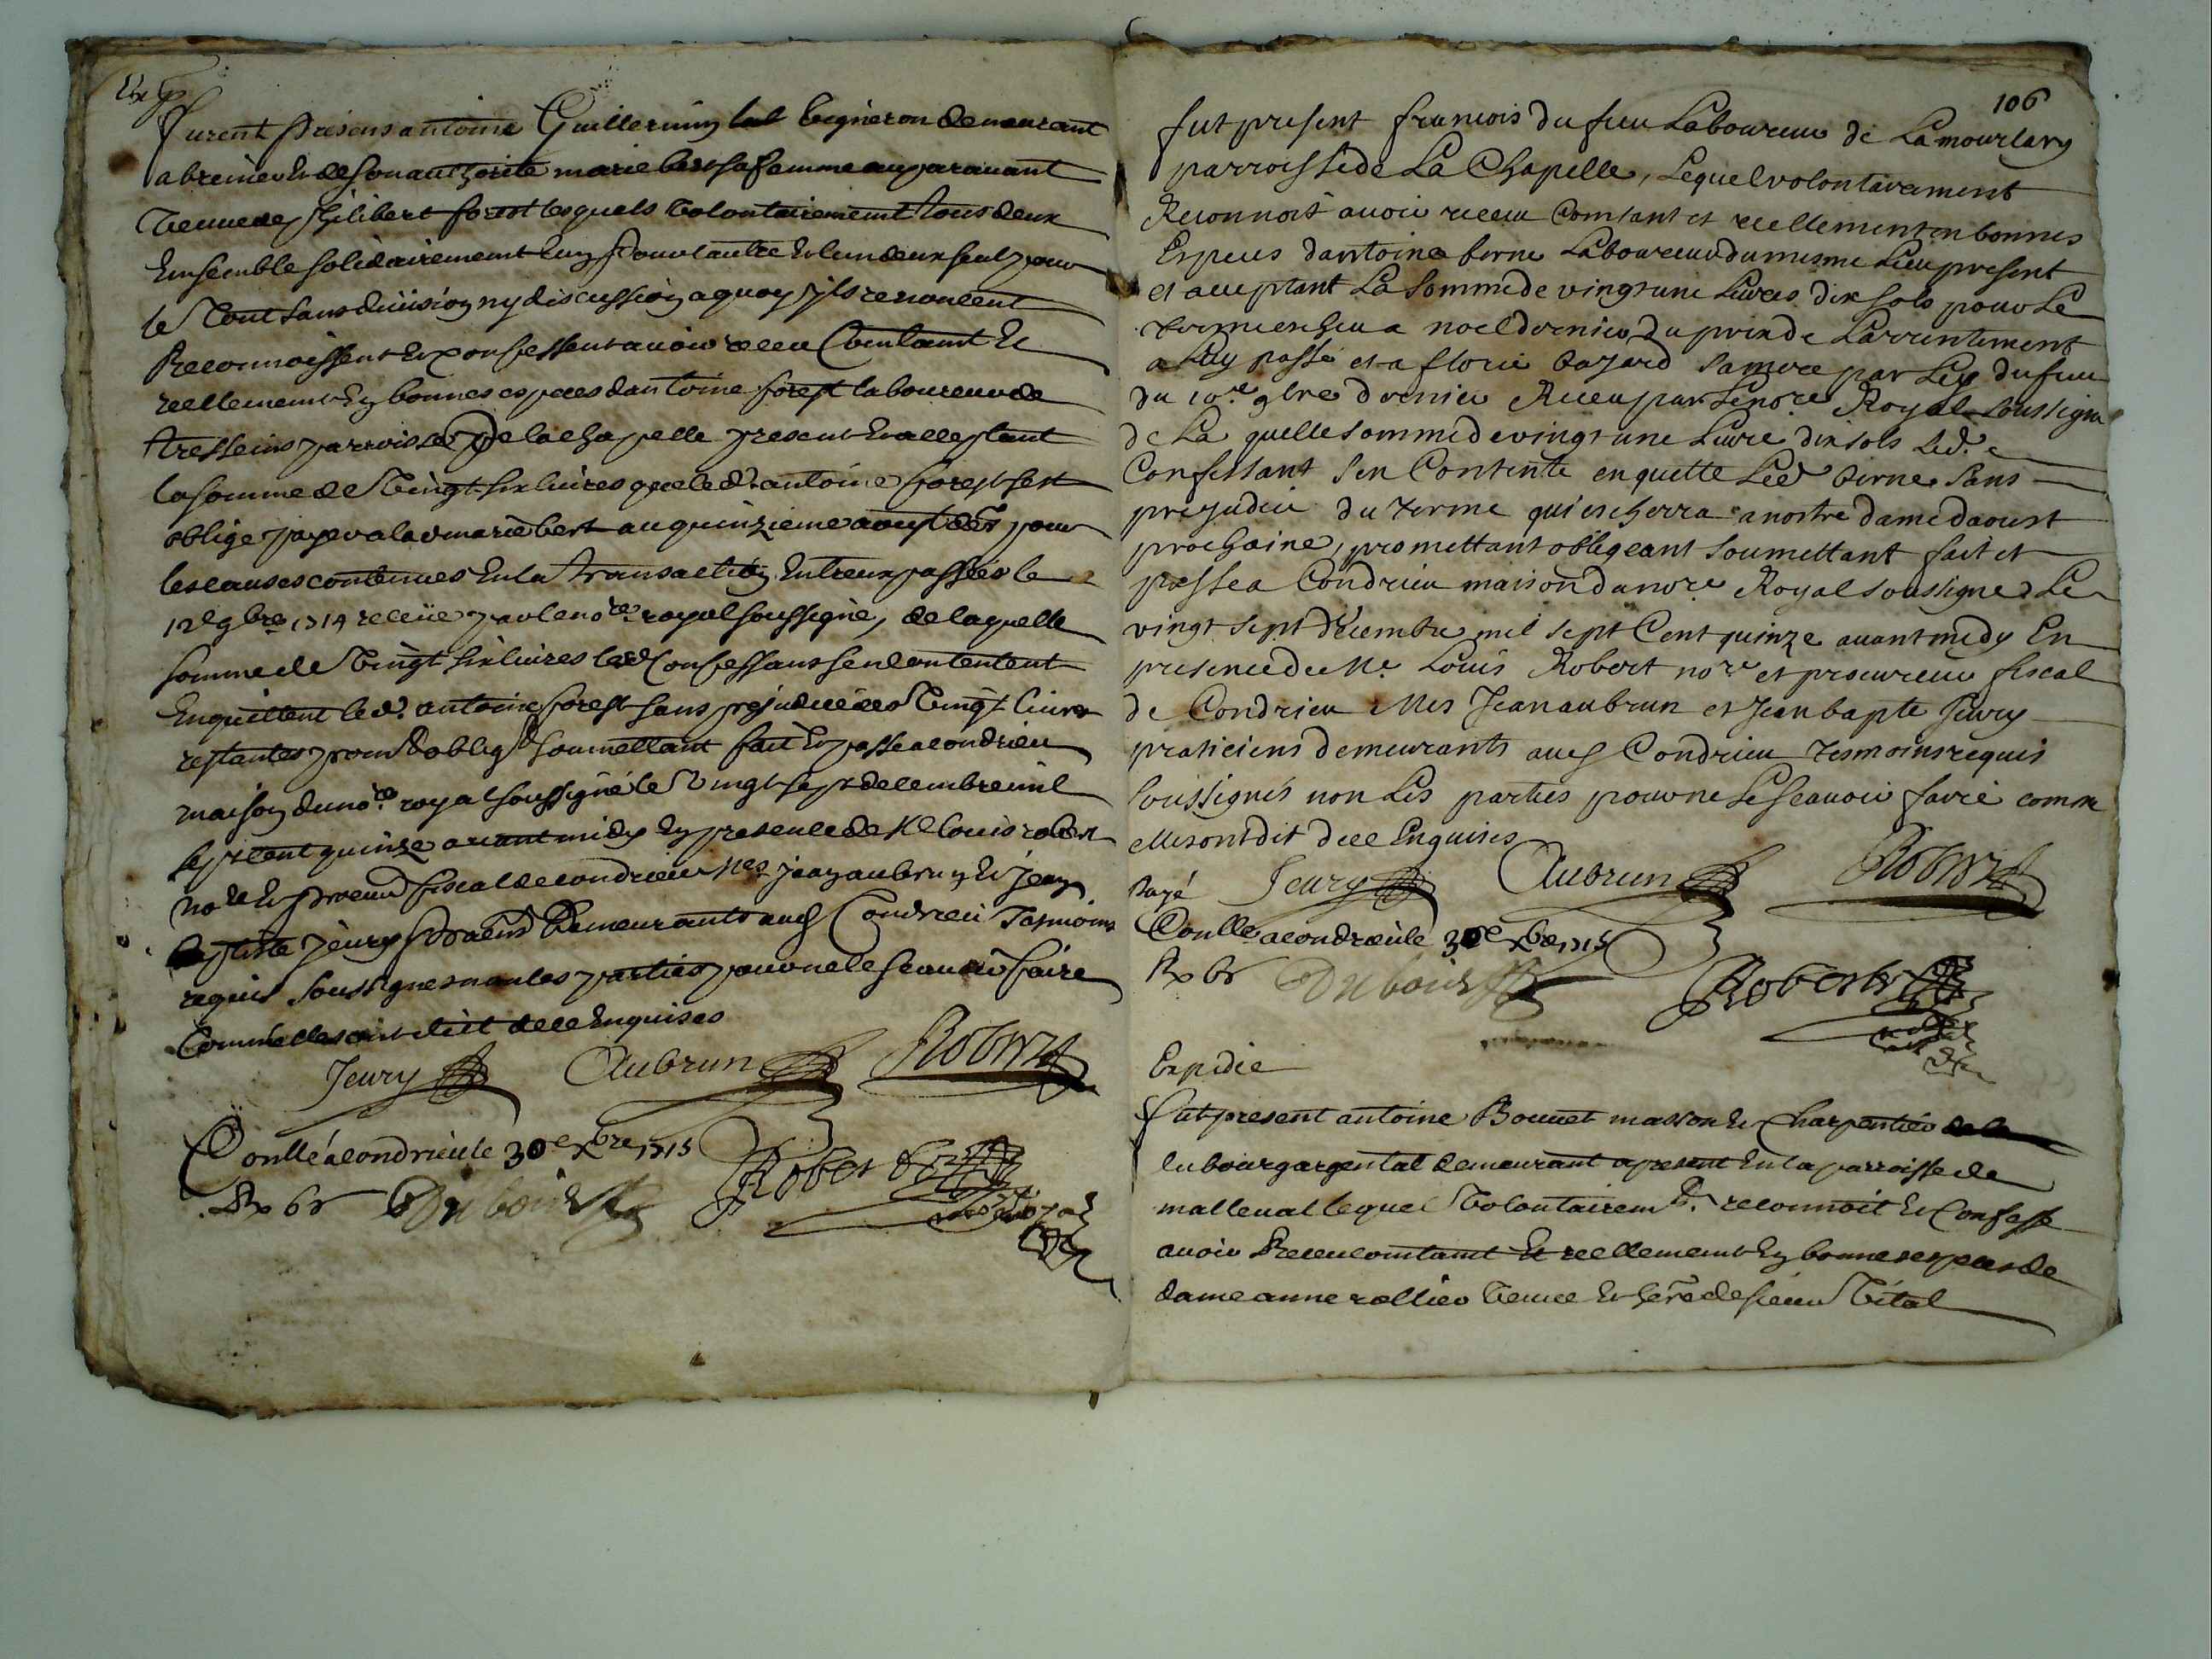 Exp
Furent presens antoine Guillermin vigneron demeurant
a breinier et de son authorité marie bert sa femme auparavant
veuve de philibert forest lesquels volontairement tous deux
Ensemble solidairement lun pour lautre et lun deux seul pour
le tout sans division ny discussion a quoy ils renoncent
Reconnoissent et confessent avoir receu Comtamt Et
reellement En bonnes especes dantoine forest laboureur de
tresseins parroisse de la chapelle present et acceptant
la somme de vingt six livres que led. antoine forest sest
obligé payer a lad marie bert au quinzieme aoust der. pour
les causes contenues En la transaction Entreux passée le
12e 9bre 1714 receüe par le nore. royal soussigné, de laquelle
somme de vingt six livres lesd Confessans sen contentent
Enquittent led. antoine forest sans prejudice des vingt livres
restantes prom.t oblig.t soumettant fait et passé a condrieu
maison du no.re royal soussigné le vingt sept decembre mil
sept cent quinze avant midy En presence de Me Louis robert
nore et procur fiscal de condrieu Mes jean aubrun et jean
baptiste jeury pratens Demeurants aud Condrieu Tesmoins
requis soussignes non les parties pour ne le scavoir faire
Comme elles ont dict de ce Enquises
Jeury Aubrun Robert
Conllé a condrieu le 30e xbre 1715
Rx 6s Dubois Robert
not royal
106
fut present francois dufieu Laboureur de Lamourlary
parroisse de La Chapelle, Lequel volontairement
Reconnoit avoir receu Comtant et reellement en bonnes
Especes dantoine berne Laboureur du mesme Lieu present
et acceptant La Somme de vingt une Livres dix sols pour Le
terme escheu a noel dernier du prix de Larrentement
a Luy passé et a florie bajard sa mere par Led dufieu
du 10.e 9bre dernier Receu par Le nore Royal soussigné
de La quelle somme de vingt une Livre dix sols Led.
Confessant sen Contente en quitte Led berne sans
prejudice du terme qui escherra a nostre dame daoust
prochaine, promettant obligeant soumettant fait et
passé a Condrieu maison du nore Royal soussigné Le
vingt sept décembre mil sept Cent quinze avant midy En
presence de Me. Louis Robert nore et procureur fiscal
de Condrieu Mes Jean aubrun et Jean bapte Jeury
praticiens demeurants aud Condrieu tesmoins requis
soussignés non Les parties pour ne Le scavoir faire comme
elles ont dit de ce Enquises
Payé Jeury Aubrun Robert
Conllé a condrieu le 30e xbre 1715
Rx 6s Dubois Robert
Expedié
fut present antoine Bonnet masson et Charpentier
du bourgargental demeurant a present En la parroisse de
malleval lequel volontairem.t reconnoit et Confesse
avoir Receu comtamt Et reellement En bonnes especes de
dame anne vallier veuve et here de sieur Vital